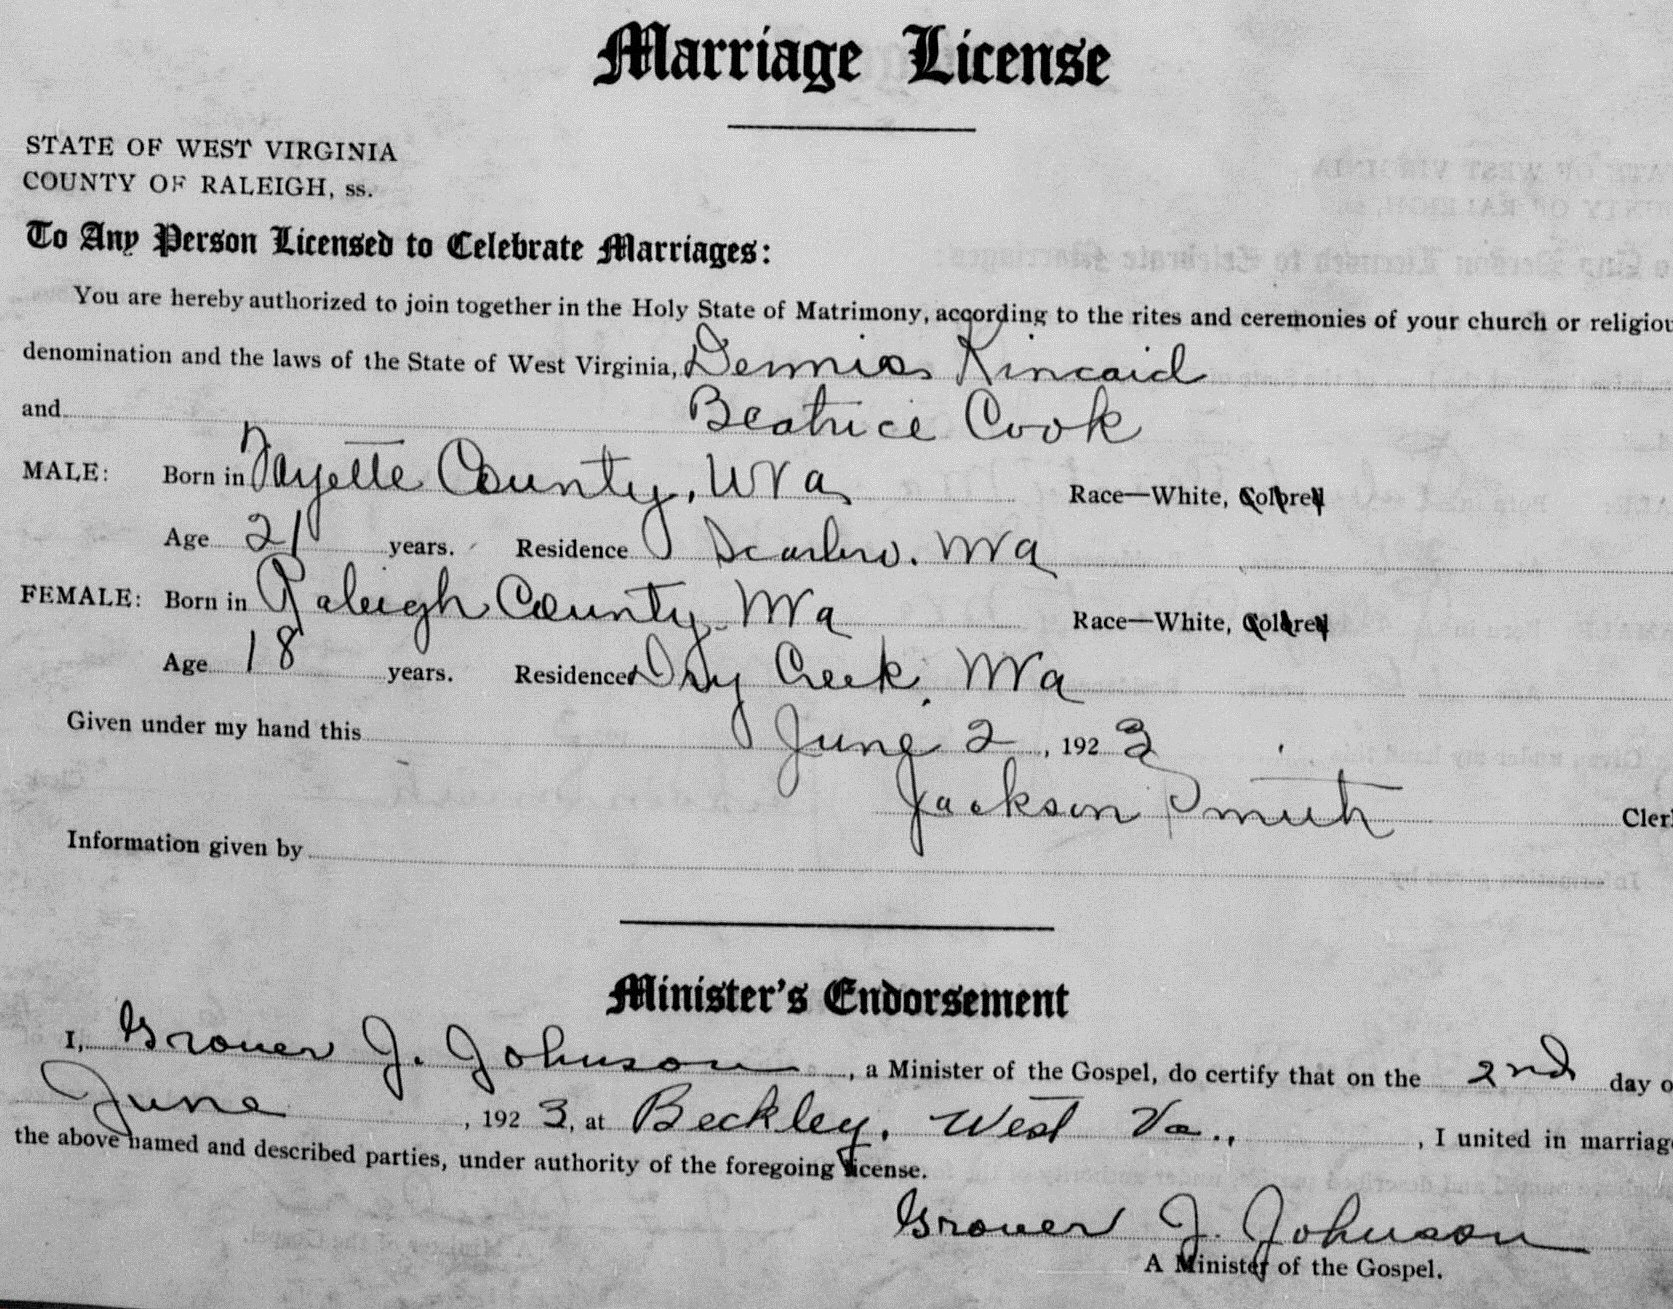 Marriage License
STATE OF WEST VIRGINIA
COUNTY OF RALEIGH, ss.
To Any Person Licensed to Celebrate Marriages:
You are hereby authorized to join together in the Holy State of Matrimony, according to the rites and ceremonies of your church or religiou
denomination and the laws of the State of West Virginia, Dennis Kincaid
and Beatrice Cook
MALE: Born in Fayette County, W Va Race—White, Colored
Age 21 years. Residence Scarbro. W Va
FEMALE: Born in Raleigh County W Va Race—White, Colored
Age 18 years. Residence Dry Creek, W Va
Given under my hand this June 2, 1923
Jackson Smith Cler
Information given by
Minister's Endorsement
I, Grover J. Johnson, a Minister of the Gospel, do certify that on the 2nd day o
June, 1923, at Beckley, West Va., I united in marriage
the above named and described parties, under authority of the foregoing license.
Grover J. Johnson
A Minister of the Gospel.